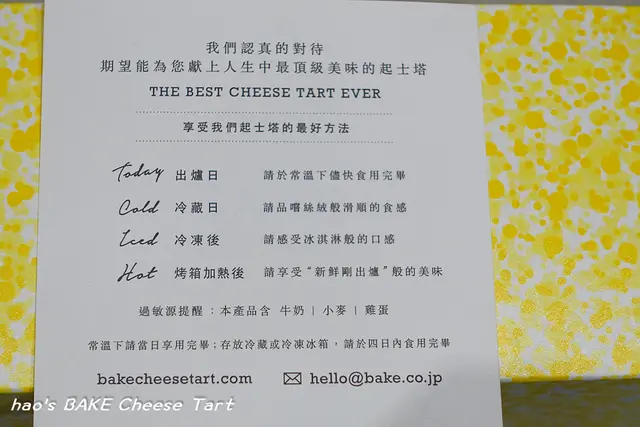 我們認真的對待
期望能為您獻上人生中最頂級美味的起士塔
THE BEST CHEESE TART EVER
享受我們起士塔的最好方法
Today 出爐日 請於常溫下儘快食用完畢
Cold 冷藏日 請品嚐絲絨般滑順的食感
Iced 冷凍後 請感受冰淇淋般的口感
Hot 烤箱加熱後 請享受“新鮮剛出爐”般的美味
過敏源提醒：本產品含 牛奶 | 小麥 | 雞蛋
常溫下請當日享用完畢；存放冷藏或冷凍冰箱，請於四日內食用完畢
bakecheesetart.com hello@bake.co.jp
hao's BAKE Cheese Tart